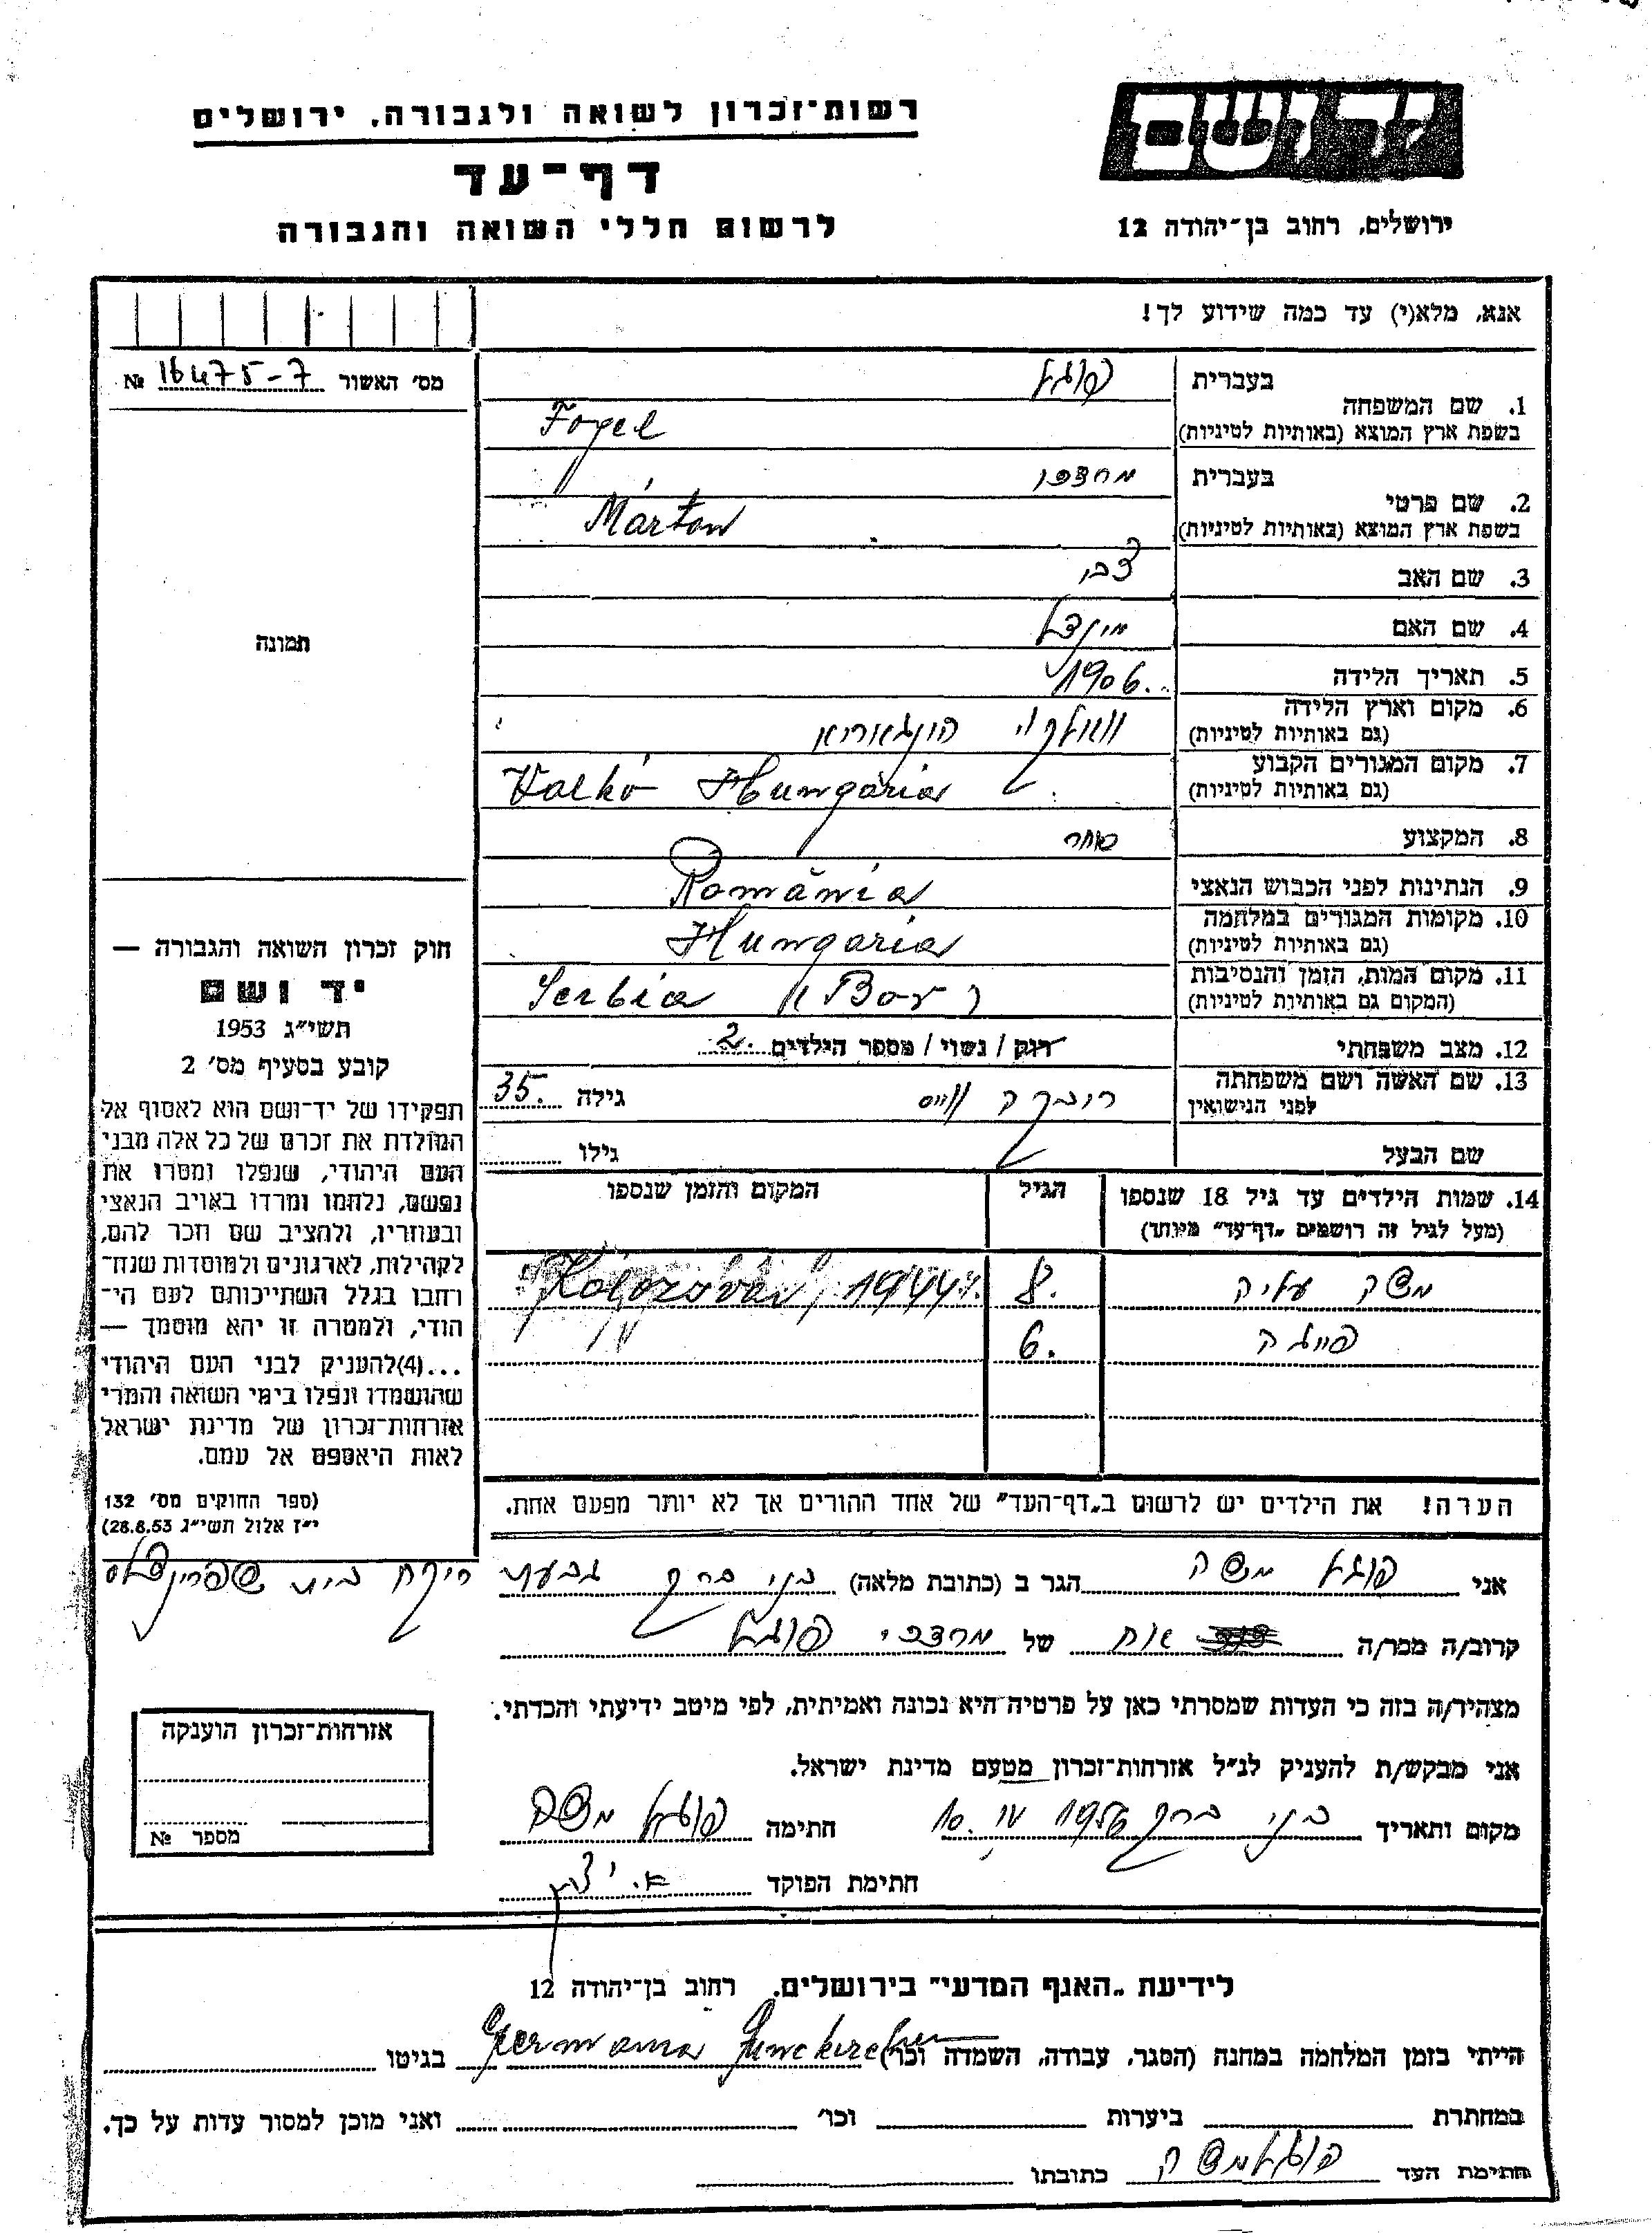 רשות־זכרון לשואה ולגבורה, ירושלים
דף־עד
לרשום חללי השואה והגבורה
ירושלים, רחוב בן־יהודה 12
אנא, מלא(י) עד כמה שידוע לך!
מס׳ האשור 16475-7 №
תמונה
1. שם המשפחה
בעברית פוגל
בשפת ארץ המוצא (באותיות לטיניות) Fogel
2. שם פרטי
בעברית
בשפת ארץ המוצא (באותיות לטיניות) Márton
3. שם האב צבי
4. שם האם מינדל
5. תאריך הלידה 1906
6. מקום וארץ הלידה הונגאריא
(גם באותיות לטיניות)
7. מקום המגורים הקבוע Valkó Hungária
(גם באותיות לטיניות)
8. המקצוע סוחר
9. הנתינות לפני הכבוש הנאצי România
10. מקומות המגורים במלחמה Hungaria
(גם באותיות לטיניות)
11. מקום המות, הזמן והנסיבות Serbia (Bor)
(המקום גם באותיות לטיניות)
12. מצב משפחתי רוק / נשוי / מספר הילדים 2
13. שם האשה ושם משפחתה רובקה ווייס גילה 35
לפני הנישואין
שם הבעל גילו
14. שמות הילדים עד גיל 18 שנספו הגיל המקום והזמן שנספו
(מעל לגיל זה רושמים „דף־עד״ מיוחד)
משה 8. 1944
6.
הערה! את הילדים יש לרשום ב„דף־העד״ של אחד ההורים אך לא יותר מפעם אחת.
חוק זכרון השואה והגבורה —
יד ושם
תשי״ג 1953
קובע בסעיף מס׳ 2
תפקידו של יד־ושם הוא לאסוף אל
המולדת את זכרם של כל אלה מבני
העם היהודי, שנפלו ומסרו את
נפשם, נלחמו ומרדו באויב הנאצי
ובעוזריו, ולהציב שם וזכר להם,
לקהילות, לארגונים ולמוסדות שנח־
רחבו בגלל השתייכותם לעם הי־
הודי, ולמטרה זו יהא מוסמך —
...(4)להעניק לבני העם היהודי
שהושמדו ונפלו בימי השואה והמרי
אזרחות־זכרון של מדינת ישראל
לאות היאספם אל עמם.
(ספר החוקים מס׳ 132
י״ז אלול תשי״ג 28.8.53)
אני פוגל משה הגר ב (כתובת מלאה) בני ברק גבעת
קרוב/ה מכר/ה אח של מרדכי פוגל
מצהיר/ה בזה כי העדות שמסרתי כאן על פרטיה היא נכונה ואמיתית, לפי מיטב ידיעתי והכרתי.
אני מבקש/ת להעניק לנ״ל אזרחות־זכרון מטעם מדינת ישראל.
מקום ותאריך בני ברק 1956 IV. 10 חתימה פוגל משה
חתימת הפוקד
אזרחות־זכרון הוענקה
מספר №
לידיעת „האגף המדעי״ בירושלים, רחוב בן־יהודה 12
הייתי בזמן המלחמה במחנה (הסגר, עבודה, השמדה וכו׳) Germania בגיטו
במחתרת ביערות וכו׳ ואני מוכן למסור עדות על כך.
חתימת העד פוגל משה כתובתו